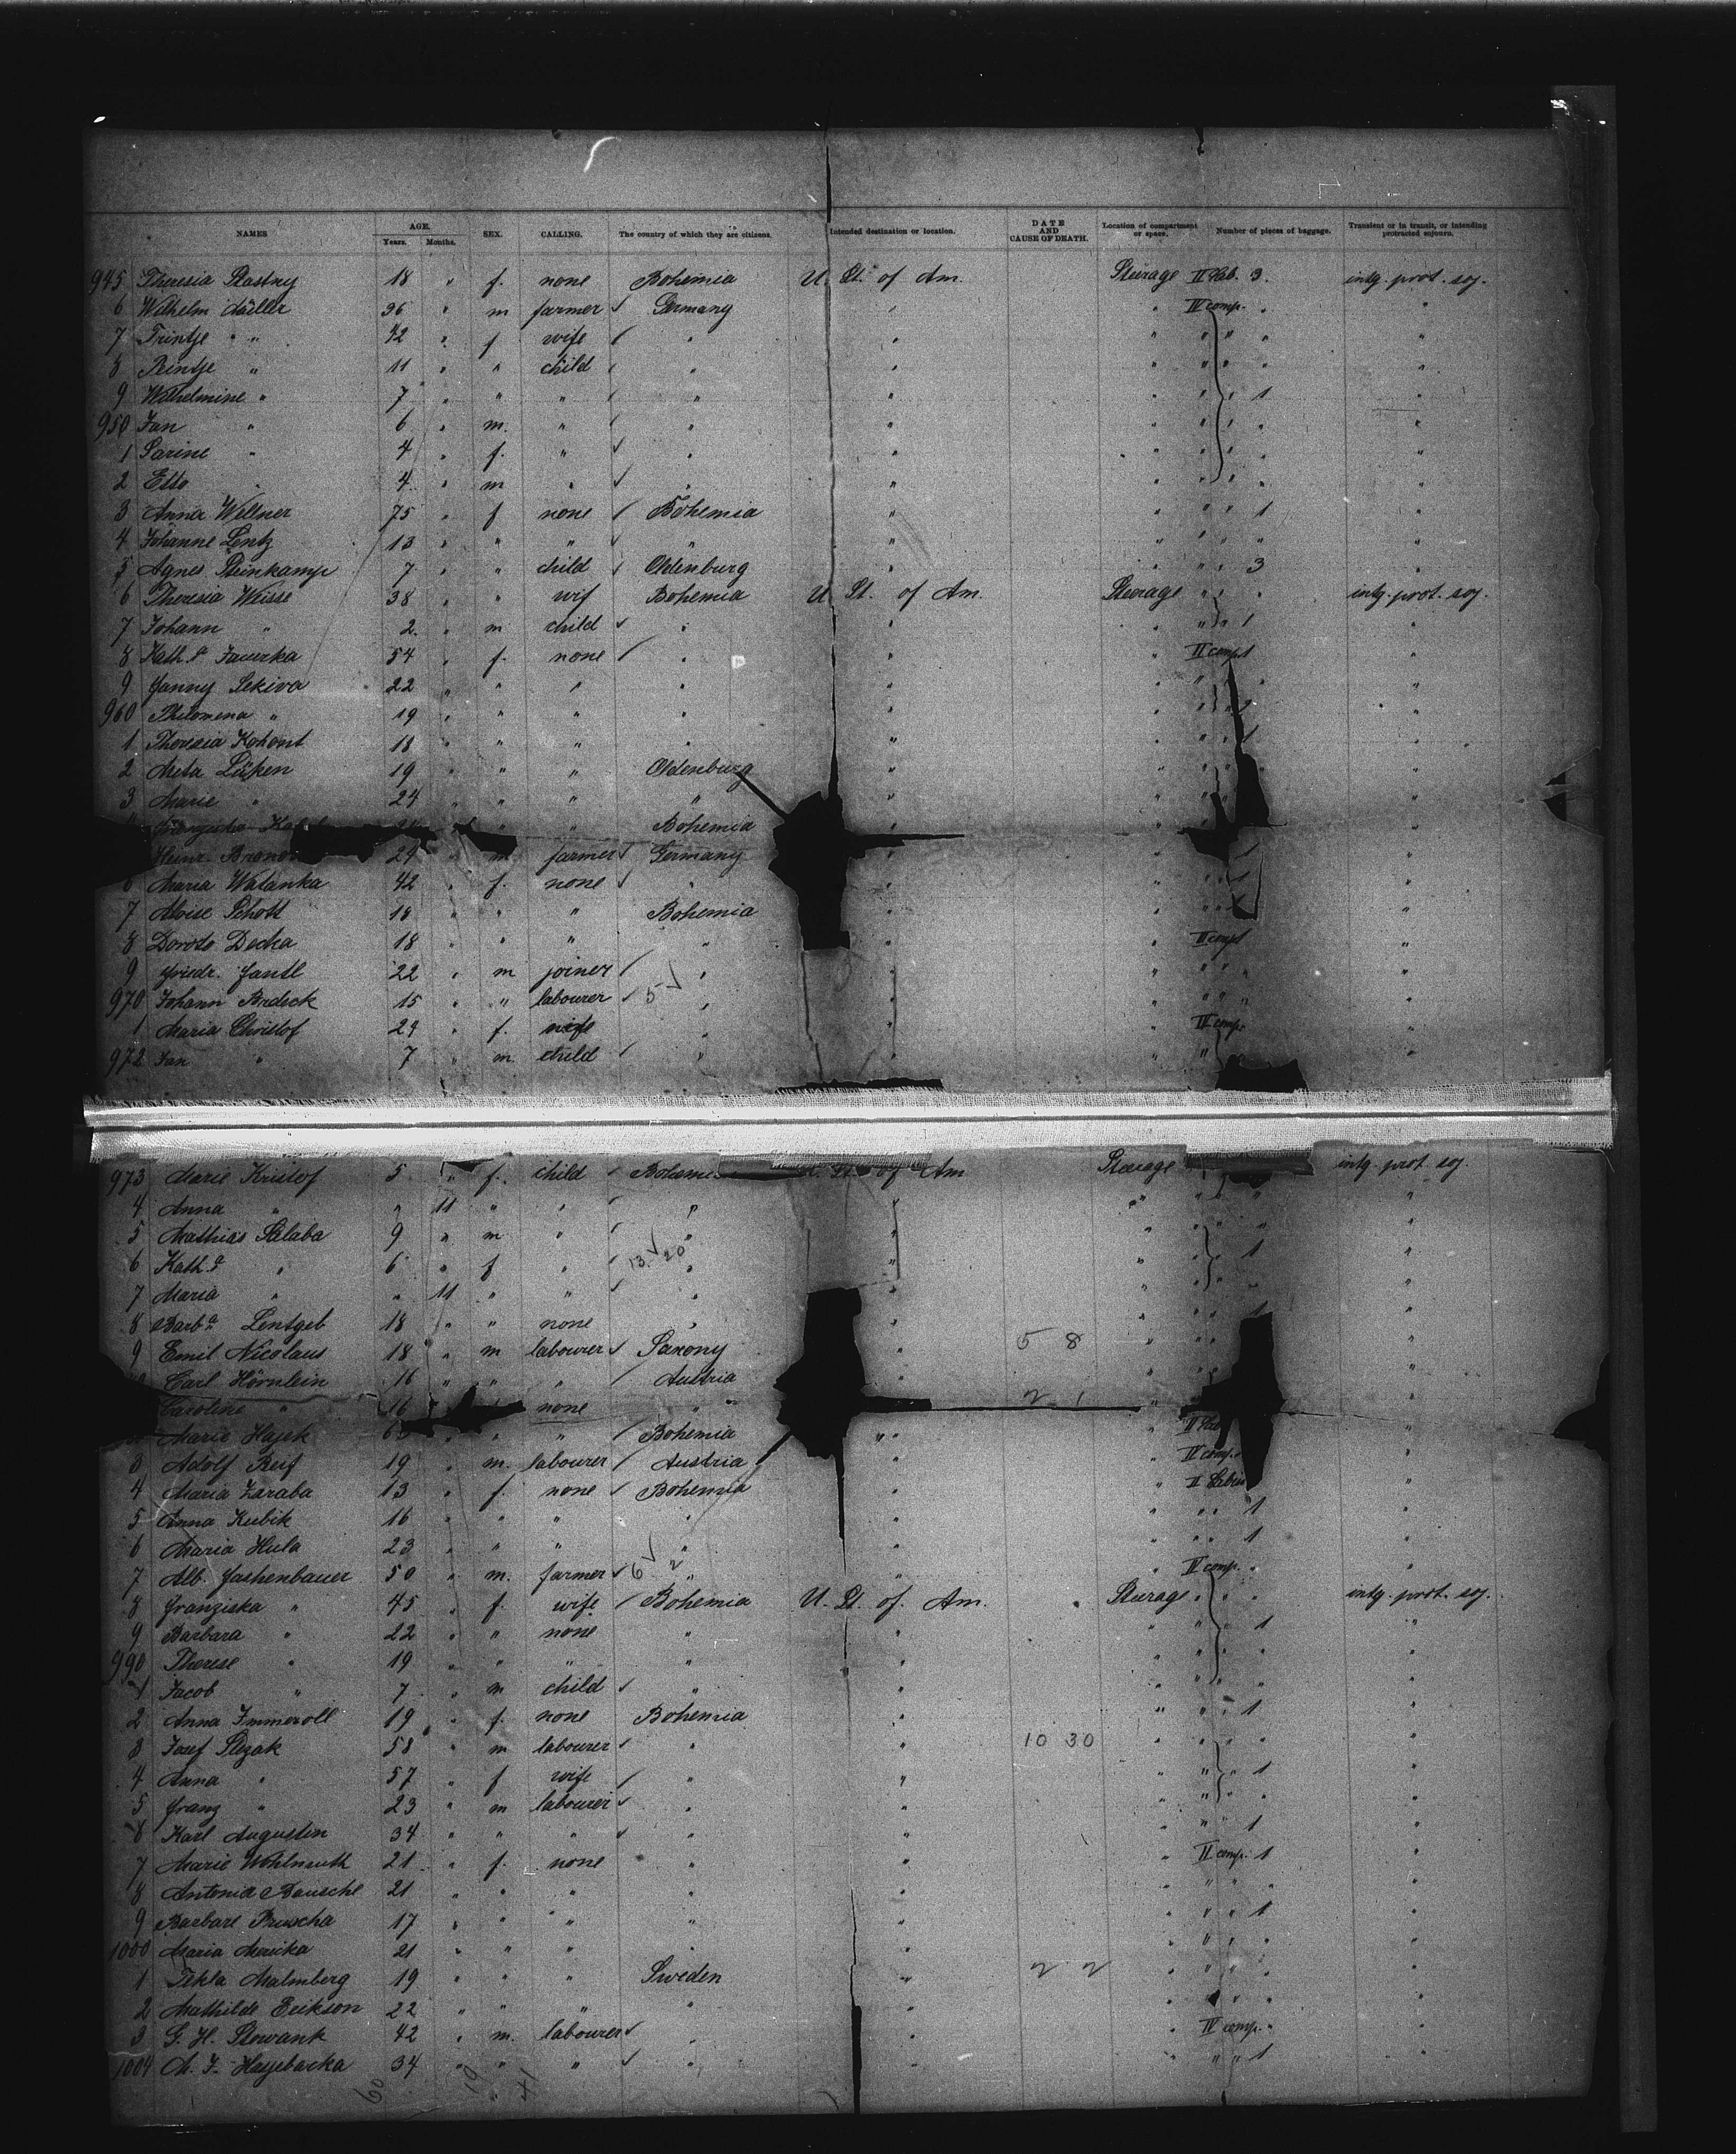 NAMES AGE. Years. Months. SEX. CALLING. The country of which they are citizens. Intended destination or location. DATE AND CAUSE OF DEATH. Location of compartment or space. Number of pieces of baggage. Transient or in transit, or intending protracted sojourn.
945 Theresia Stastny 18 " f. none Bohemia U. St. of Am. Steerage II Cab. 3. intg. prot. soj.
6 Wilhelm Müller 36 " m farmer Germany " " IV comp. " "
7 Trintje " 42 " f wife " " " " " " "
8 Reintje " 11 " " child " " " " " " "
9 Wilhelmine " 7 " " " " " " " " 1 "
950 Jan " 6 " m. " " " " " " " "
1 " 4 " f. " " " " " " " "
2 Etto " 4 " m " " " " " " " "
3 Anna Wellner 75 " f none Bohemia " " " " 1 "
4 Johanne Lentz 13 " " " " " " " " " "
5 Agnes Steinkamp 7 " " child Oldenburg " " " " 3 "
6 Theresia Weisse 38 " " wif Bohemia U. St. of Am. Steerage " " " intg. prot. soj.
7 Johann " 2 " m child " " " " " 1 "
8 Kath.a 54 " f. none " " " II comp. 1 "
9 Fanny Sekiva 22 " " " " " " " " "
960 Philomena " 19 " " " " " " " " 1 "
1 Theresia Kohout 18 " " " " " " " " 1 "
2 Meta Lüken 19 " " " Oldenburg " " " " " "
3 Marie " 24 " " " " " " " " "
" " Bohemia " " "
Heinr. 24 " m farmer Germany " " " 1 "
6 Maria Watanka 42 " f. none " " " " " 1 "
7 Aloise Schott 18 " " " Bohemia " " " " "
8 Decha 18 " " " " " " II comp. 1 "
9 Friedr. Jantl 22 " m joiner " " " " " " "
970 Johann 15 " " labourer 5 " " " " " " "
1 Maria Christof 24 " f. wife " " " IV comp. "
972 Jan " 7 " m. child " " " " "
973 Marie Kristof 5 " f. child U. St. of Am Steerage intg. prot. soj.
4 Anna " " 11 " " " " " " " " "
5 Mathias Salaba 9 " m " " " " " " " "
6 Kath.a " 6 " f " 13 20 " " " " 1 "
7 Maria " " 11 " " " " " " " " "
8 Barb.a Lentgeb 18 " " none " " " " 1 "
9 Emil Nicolaus 18 " m labourer Saxony " 5 8 " " " "
Carl Hörnlein 16 " " " Austria " " " "
Caroline " 16 none " 2 1 " "
Marie Hajek " " " Bohemia " " II "
3 Adolf Reif 19 " m. labourer Austria " " IV comp. "
4 Maria Zaraba 13 " f. none Bohemia " " II "
5 Anna Kubik 16 " " " " " " " " 1 "
6 Maria Hula 23 " " " " " " " " 1 "
7 Alb. Jashenbauer 50 " m. farmer 6 2 " " " IV comp. " "
8 Franziska " 45 " f. wife Bohemia U. St. of. Am. Steerage " " " intg. prot. soj.
9 Barbara " 22 " " none " " " " " 1 "
990 Therese " 19 " " " " " " " " " "
1 Jacob " 7 " m child " " " " " " "
2 Anna Immeroll 19 " f. none Bohemia " " " " 1 "
3 Josef Slezak 58 " m labourer " " 10 30 " " " " "
4 Anna " 57 " f wife " " " " " 1 "
5 Franz " 23 " m labourer " " " " " " "
6 Karl Augustin 34 " " " " " " " " 1 "
7 Marie Wohlmuth 21 " f. none " " " II comp. 1 "
8 Antonia Bauschl 21 " " " " " " " " " "
9 Barbara Pruscha 17 " " " " " " " " 1 "
1000 Maria Mericka 21 " " " " " " " " " "
1 Tekla Malmberg 19 " " " Sweden " 2 2 " " " " "
2 Mathilde Erikson 22 " " " " " " " " " "
3 G. H. Stewank 42 " m. labourer " " " IV comp. " "
1004 M. J. Hagebacka 34 " " " " " " " " 1 "
60 19 41